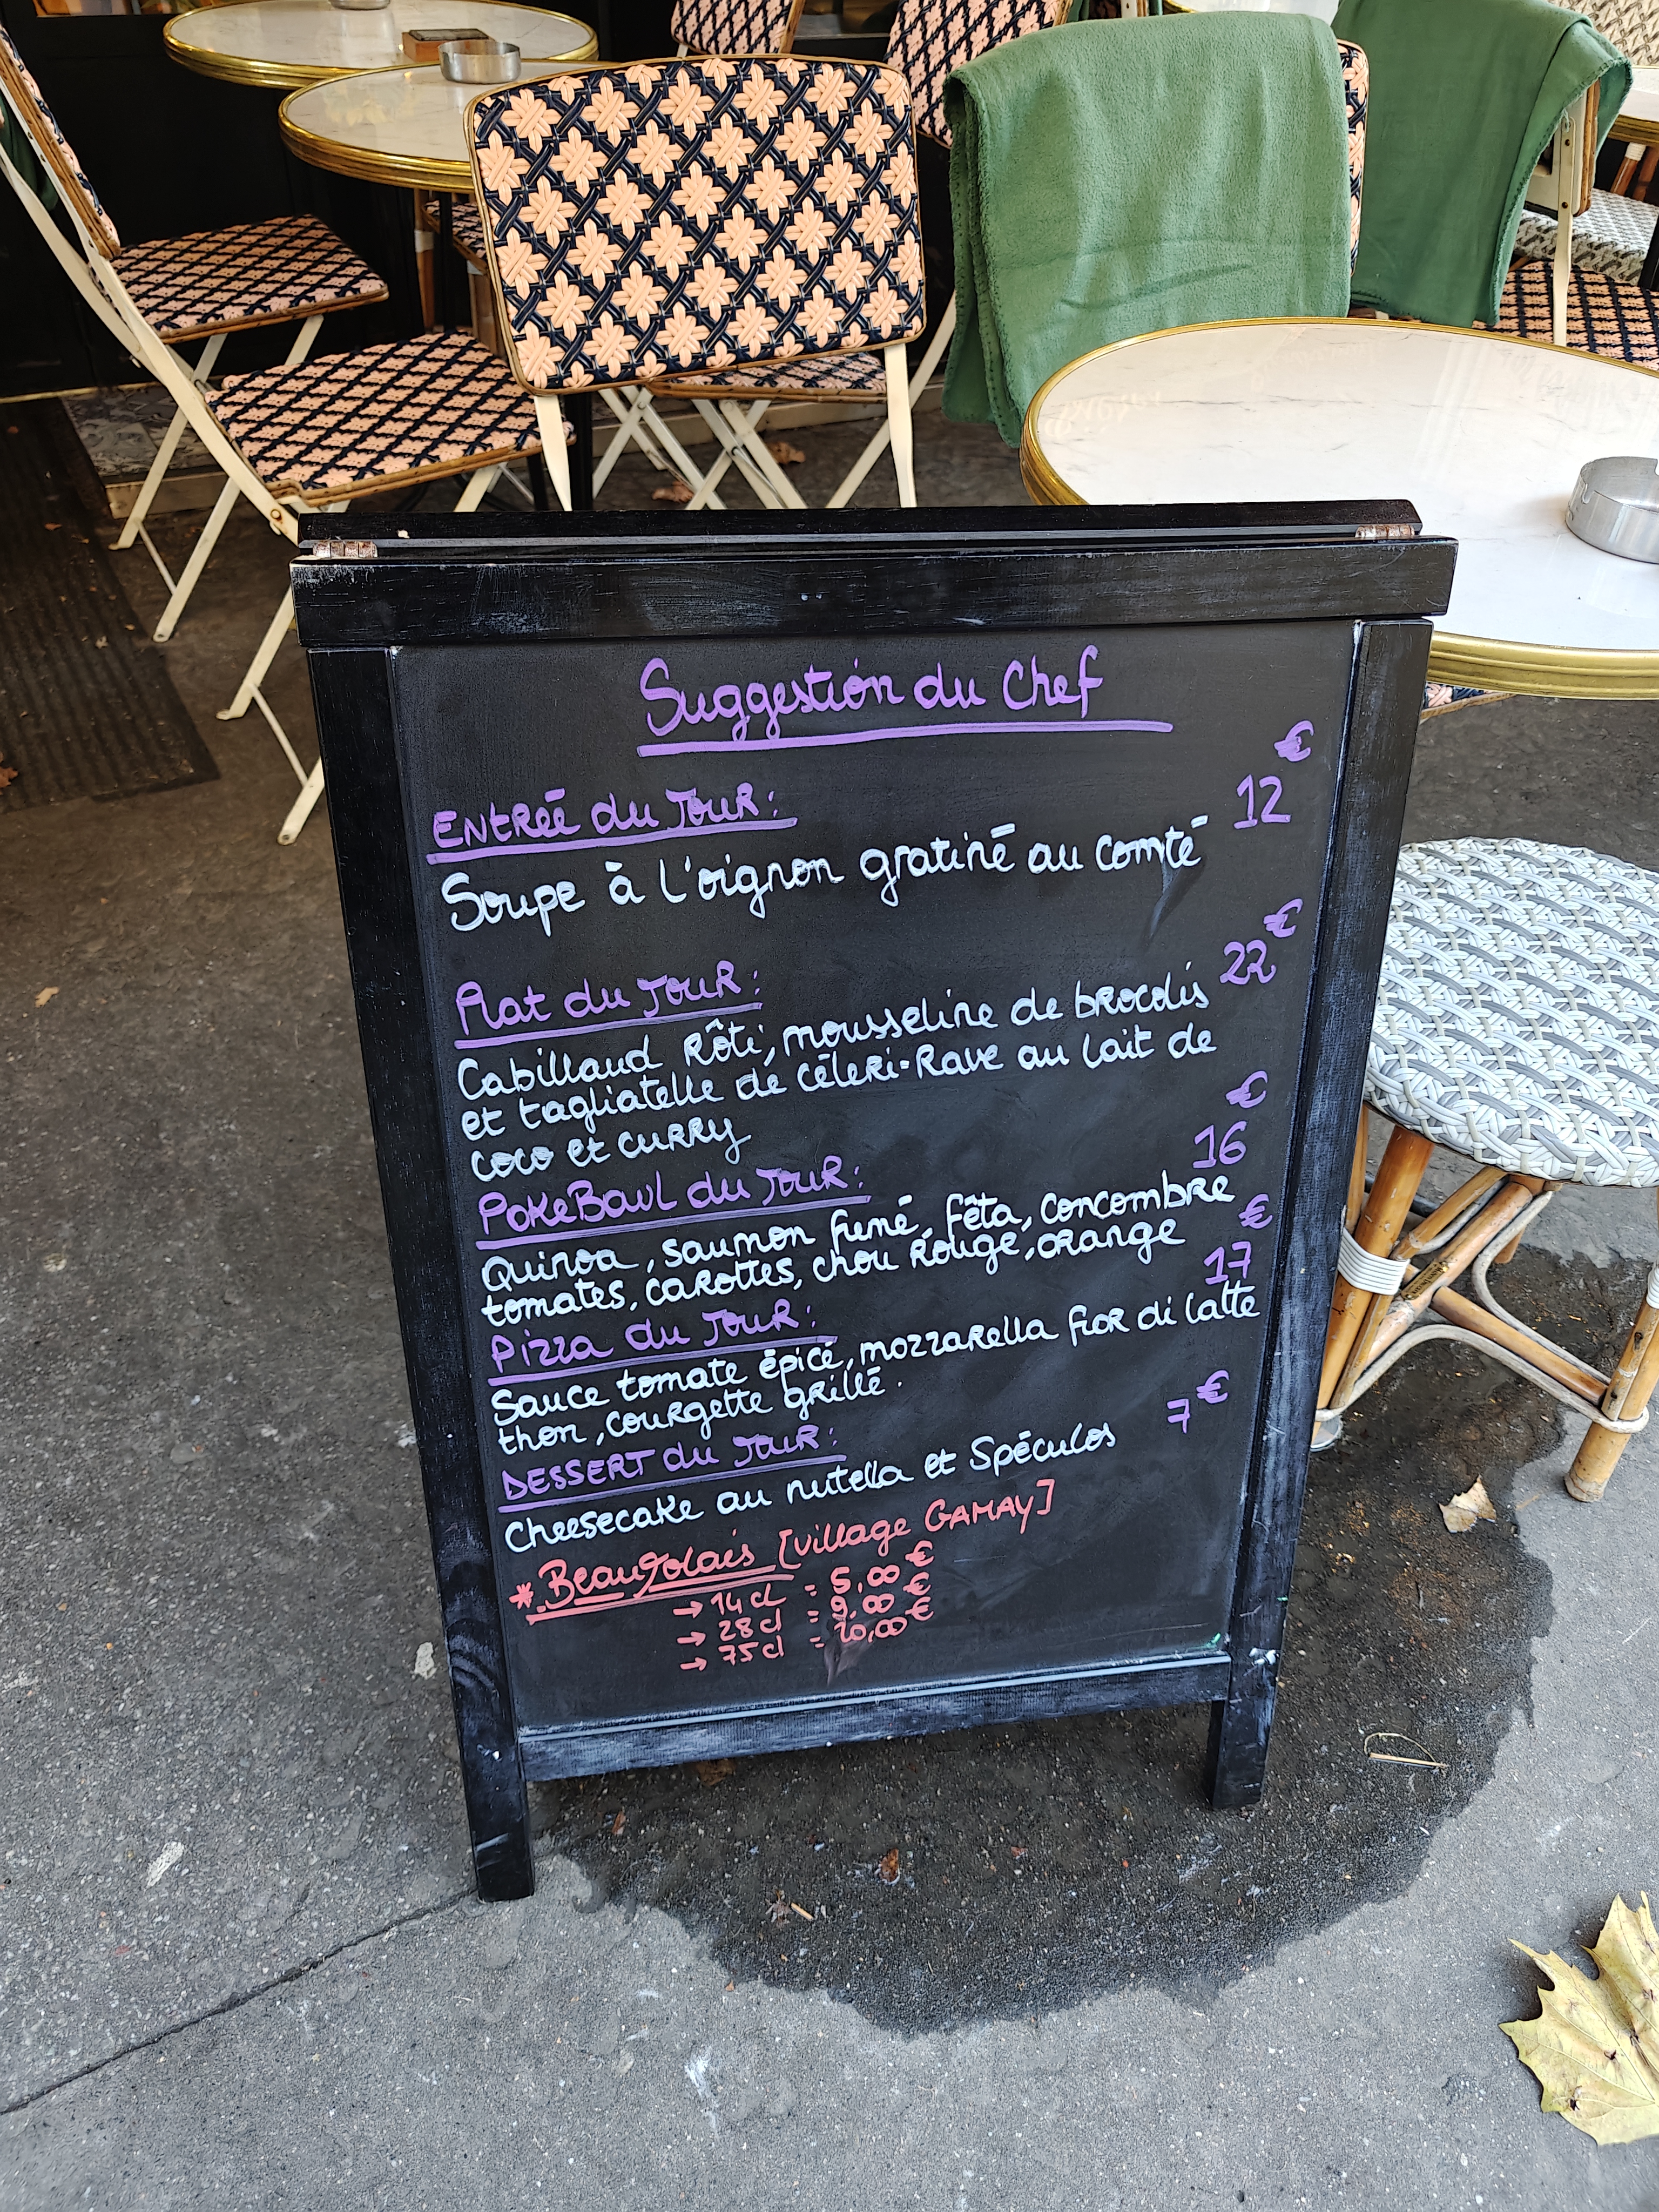 Suggestion du Chef
€
Entrée du Jour: 12
Soupe à l'oignon gratiné au comté
€
Plat du Jour: 22
Cabillaud Rôti, mousseline de brocolis
et tagliatelle de céleri-Rave au lait de
coco et curry
€
PokeBowl du Jour: 16
Quinoa, saumon fumé, fêta, concombre
tomates, carottes, chou Rouge, orange
€
Pizza du Jour: 17
Sauce tomate épicé, mozzarella fior di latte
thon, courgette grillé.
€
Dessert du Jour: 7
Cheesecake au nutella et Spéculos
*.Beaujolais [village GAMAY]
→ 14 cl = 5,00 €
→ 28 cl = 9,00 €
→ 75 cl = 20,00 €